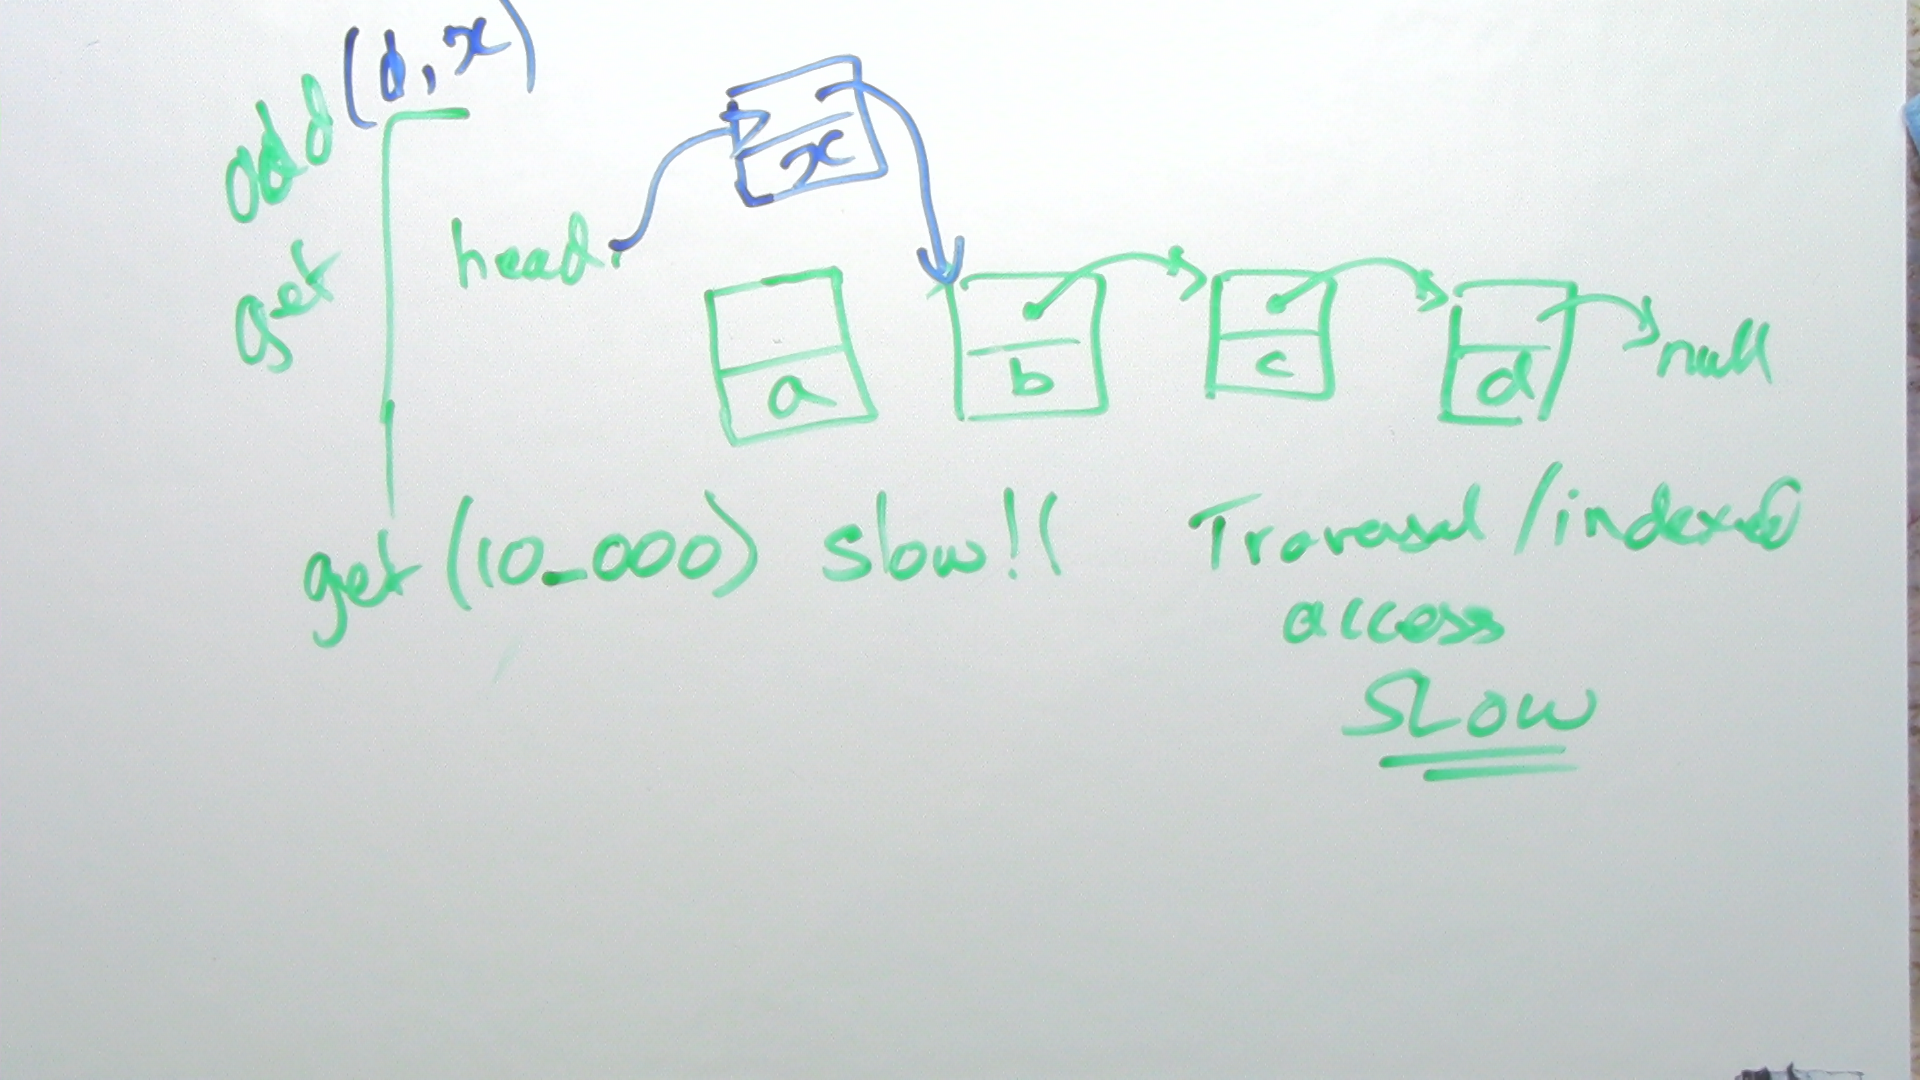 add
get
head
x
a
b
c
d
null
get (10_000) slow!!
Traversal / indexed
access
SLOW